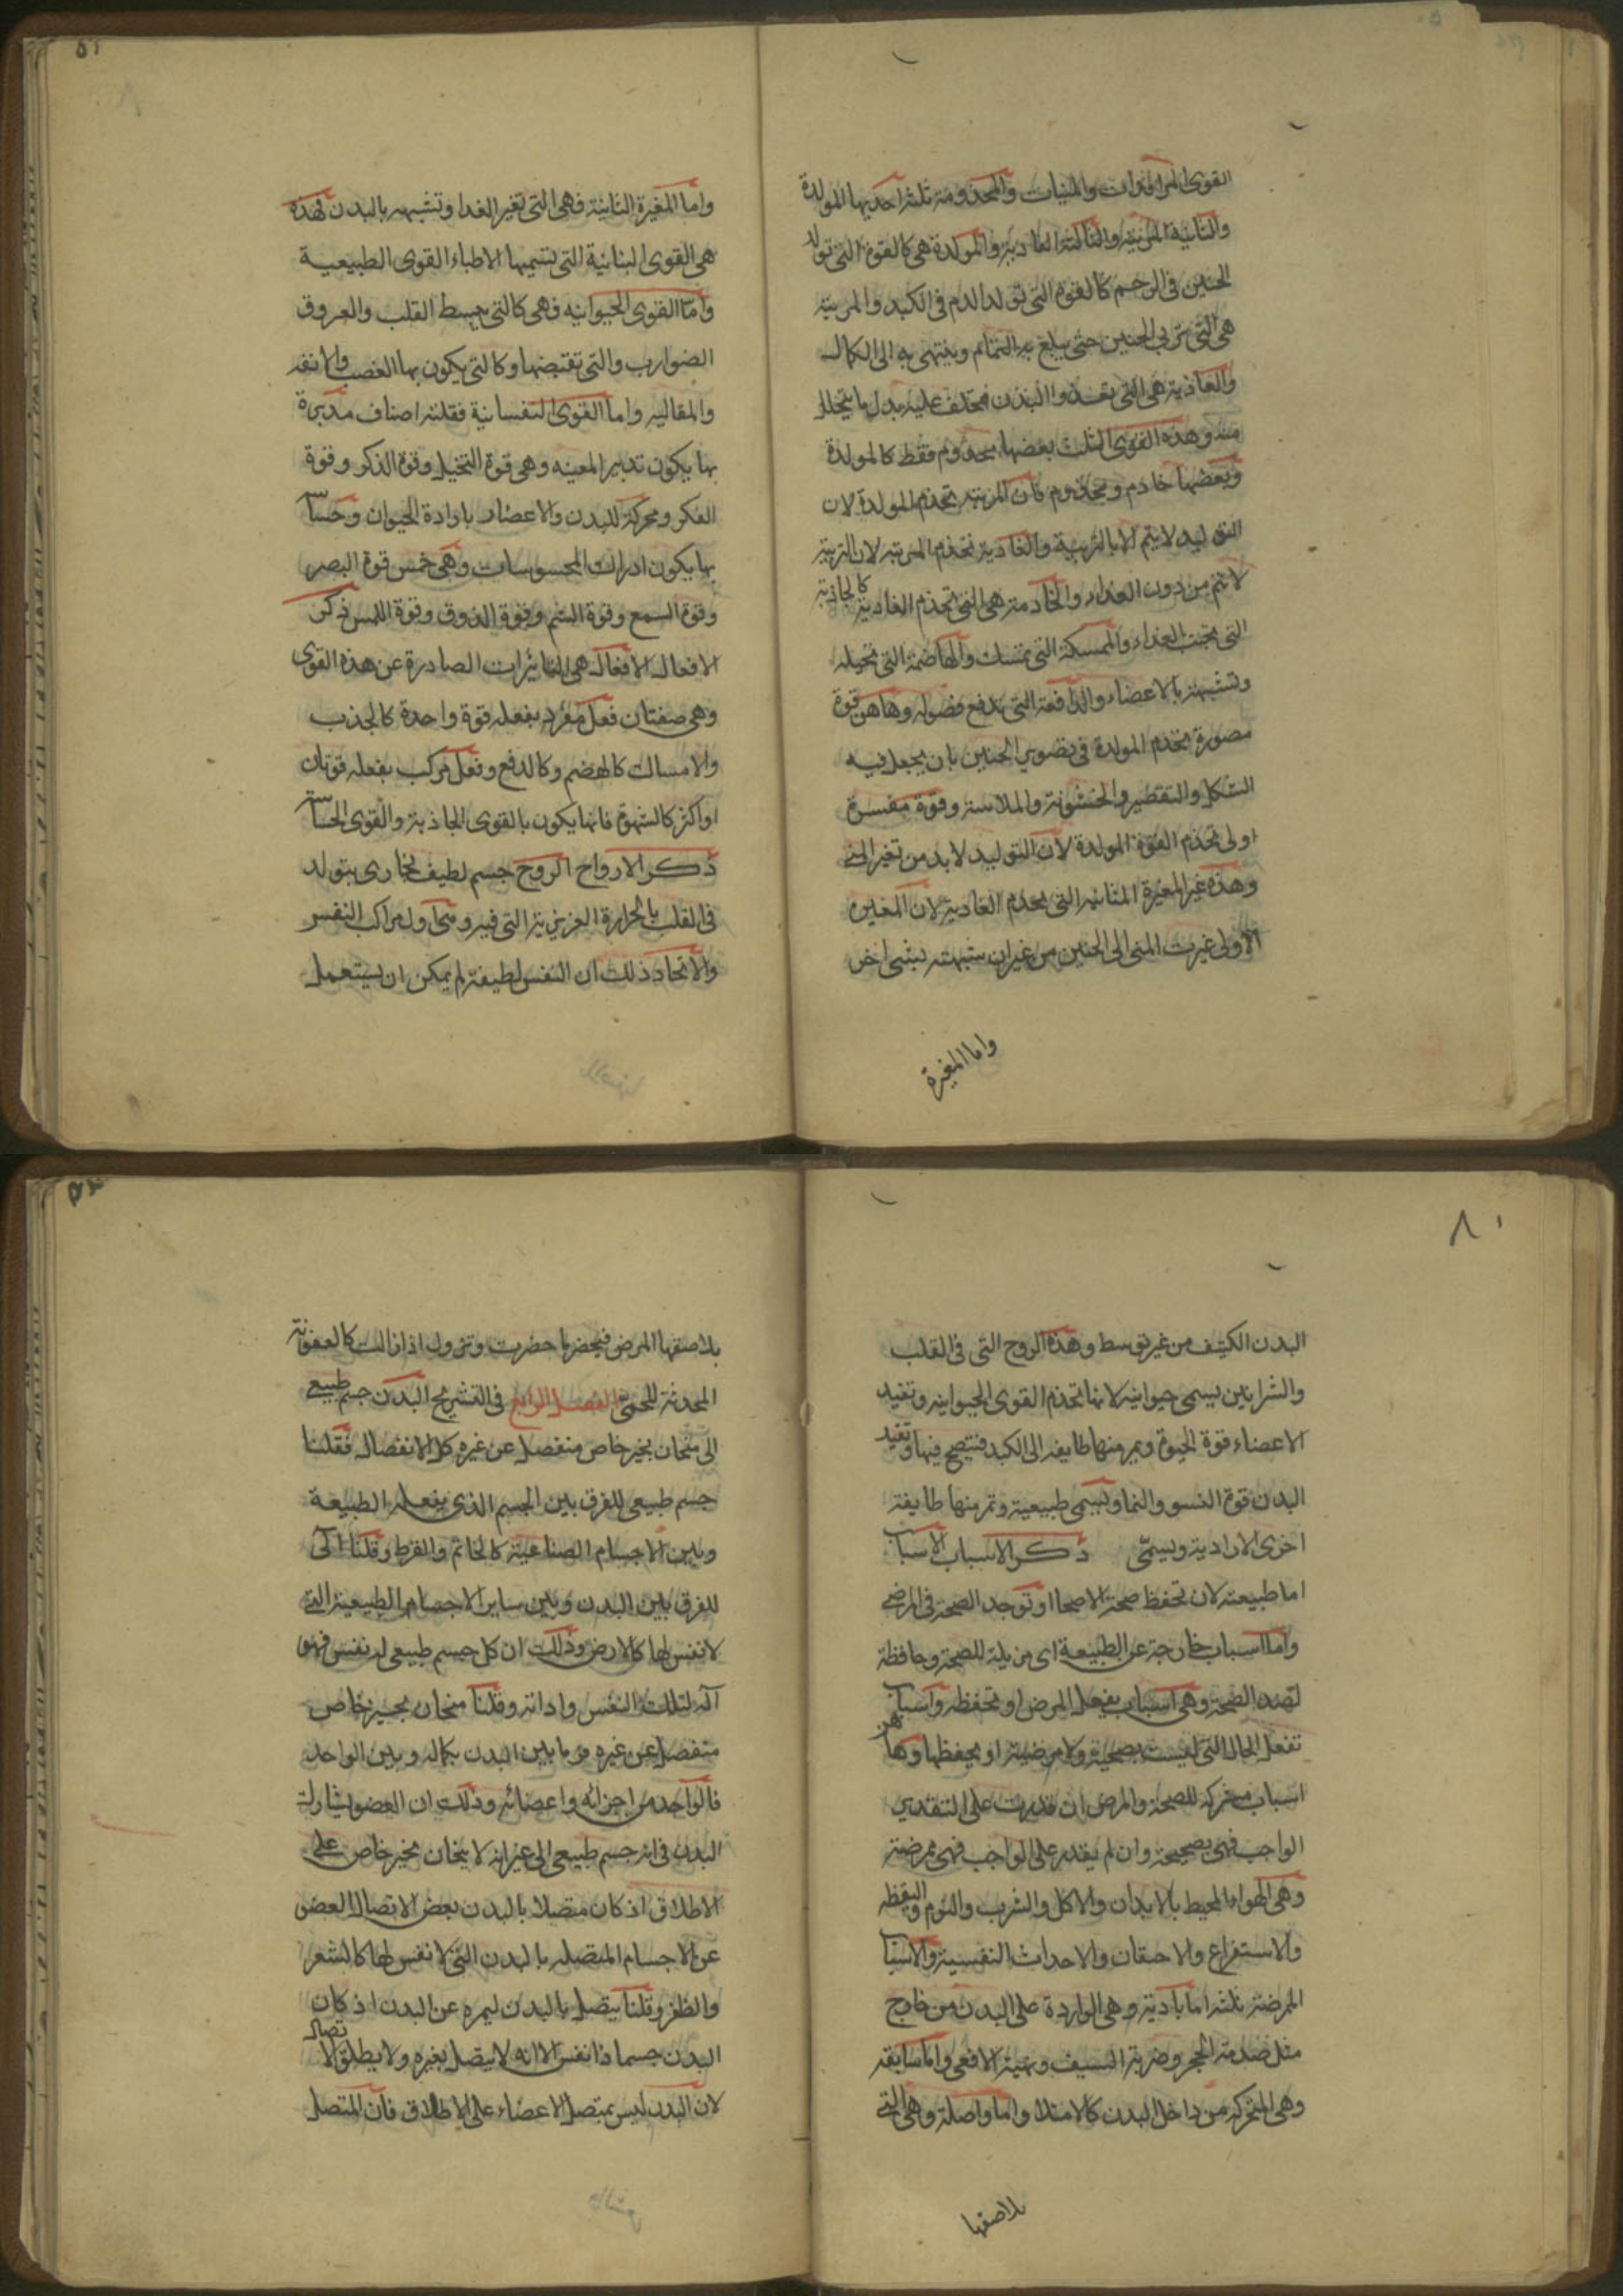 القوى المرافدات والمنيات والمخدومة ثلثه احديها المولدة
والثانية المربية والثالثة الغادية والمولدة هى كالقوة التى تولد
الجنين فى الرحم كالقوة التى تولد الدم فى الكبد والمربية
هى التى تربى الجنين حتى يبلغ به التمام وينتهى به الى الكمال
والغاذية هى التى تغذوا البدن فتخلف عليه بدل ما يتحلل
منه وهذه القوى الثلث بعضها مخدوم فقط كالمولدة
وبعضها خادم ومخدوم فان المربية تخدم المولدة لان
التوليد لا يتم الا بالتربية والغاذية تخدم المربية لان التربية
لا تتم من دون الغذاء والخادمة هى التى تخدم الغاذية كالجاذبة
التى تجتذب الغذاء والممسكة التى تمسك والهاضمة التى تحيله
وتشبهه بالاعضاء والدافعة التى تدفع فضوله وهاهن قوة
مصورة تخدم المولدة فى تصوير الجنين بان يجعل فيه
الشكل والتقطير والخشونة والملاسة وقوة مغيرة
اولى تخدم القوة المولدة لان التوليد لا بد من تغير المنى
وهذه غير المغيرة الثانية التى تخدم الغاذية لان المغيرة
الاولى غيرت المنى الى الجنين من غير ان شبهته بشى اخر
واما المغيرة
٥١
واما المغيرة الثانية فهى التى تغير الغدا وتشبهه بالبدن فهذه
هى القوى النباتية التى يسميها الاطباء القوى الطبيعية
واما القوى الحيوانيه فهى كالتى يبسط القلب والعروق
الضوارب والتى تقتبضها وكالتى يكون بها الغضب والانفه
والمغالبه واما القوى النفسانية فثلثه اصناف مدبرة
بها يكون تدبير المعينه وهى قوة التخيل وقوة الذكر وقوة
الفكر ومحركة للبدن والاعضاء بارادة الحيوان وحساسة
بها يكون ادراك المحسوسات وهى خمس قوة البصر
وقوة السمع وقوة الشم وقوة الذوق وقوة اللمس ذكر
الافعال الافعال هى التاثيرات الصادرة عن هذه القوى
وهى صفتان فعل مفرد يفعله قوة واحدة كالجذب
والامساك كالهضم وكالدفع وفعل مركب يفعله قوتان
او اكثر كالشهوة فانها يكون بالقوى الجاذبة والقوى الحساسة
ذكر الارواح الروح جسم لطيف بخارى يتولد
فى القلب بالحرارة الغريزية التى فيه وهى اول مراكب النفس
والاتحاد ذلك ان النفس لطيفة لم يمكن ان يستعمل
٨١
البدن الكثيف من غير توسط وهذه الروح التى فى القلب
والشرايين يسمى حيوانيه لانها تخدم القوى الحيوانيه وتفيد
الاعضاء قوة الحيوة ويمر منها طايفه الى الكبد فتنضج فيها وتفيد
البدن قوة النسو والنما ويسمى طبيعية وتمر منها طايفة
اخرى الارادية ويسمّى ذكر الاسباب الاسباب
اما طبيعته لان تحفظ صحة الاصحا او توجد الصحة فى المرضى
واما اسباب خارجة عن الطبيعة اى مزيلة للصحة وحافظة
لضد الصحة وهى اسباب يفعل المرض او تحفظه واسباب
تفعل الحال التى ليست بصحية ولا مرضية او يحفظها وهاهن
اسباب مشركه للصحة والمرض ان قدرت على التقدير
الواجب فهى صحيحة وان لم يقدر على الواجب فهى ممرضة
وهى الهوا المحيط بالابدان والاكل والشرب والنوم واليقظه
والاستفراغ والاحتقان والاحداث النفسية والاسباب
الممرضة ثلثه اما بادية وهى الواردة على البدن من خارج
مثل صدمة الحجر وضربة السيف ونهية الافعى واما سابقه
وهى المتحركه من داخل البدن كالامتلا واما واصلة وهى التى
بلاصقها
بلاصقها المرض فيحضر ما حضرت وتزول اذا زالت كالعفونة
المحدثة للحمىّ الفصل الرابع فى التشريح البدن جسم طبيعى
الى منحان بحيز خاص منفصل عن غيره كل الانفصال فقلنا
جسم طبيعى للفرق بين الجسم الذى يفعله الطبيعة
وبين الاجسام الصناعية كالخاتم والقرط وقلنا الى
للفرق بين البدن وبين ساير الاجسام الطبيعية التى
لا نفس لها كالارض وذلك ان كل جسم طبيعى له نفس فهو
آلة لتلك النفس واداته وقلنا منحان بحيز خاص
منفصل عن غيره فرما بين البدن بكماله وبين الواحد
فالواحد من اجزائه واعضائه وذلك ان العضو يشارك
البدن فى انه جسم طبيعى الى غير انه لا ينحان بحيز خاص على
الاطلاق اذ كان متصلا بالبدن بعض الاتصال العضو
عن الاجسام المتصله بالبدن التى لا نفس لها كالشعر
والظفر وقلنا يتصل بالبدن ليمره عن البدن اذ كان
البدن جسما ذا نفس الا انه لا يتصل بغيره ولا يطلق الاتصال
لان البدن ليس بمتصل الاعضاء على الاطلاق فان المتصل